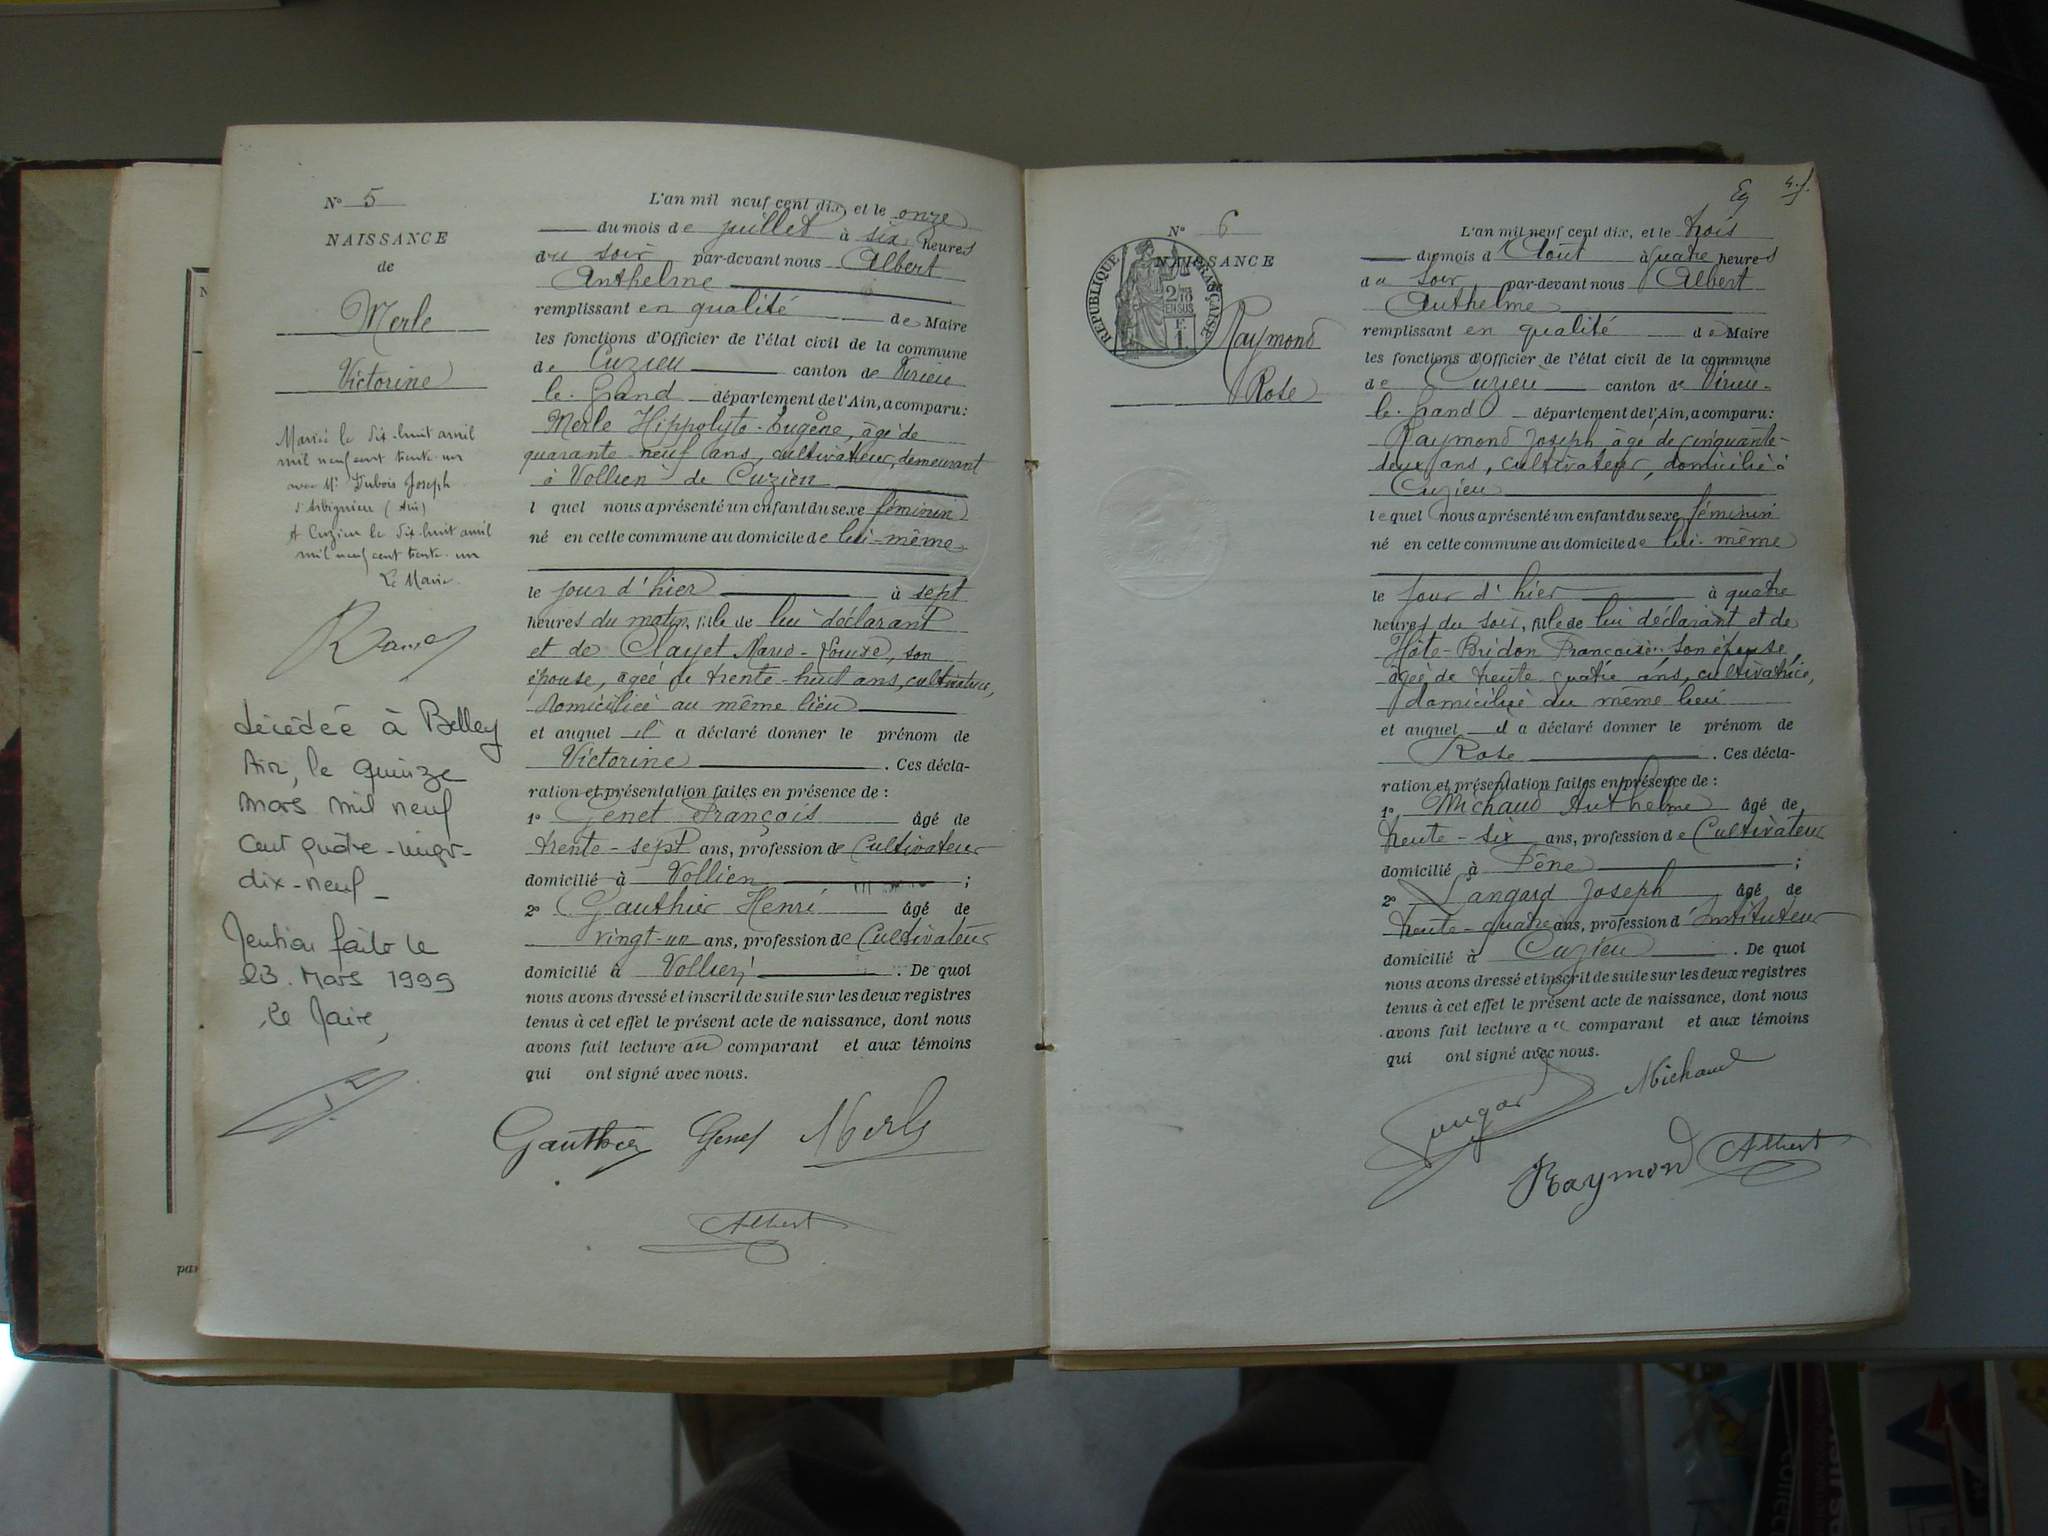 N° 5
NAISSANCE
de
Merle
Victorine
Mariée le dix-huit avril
mil neuf cent trente-un
avec Mr Dubois Joseph
d'Arbignieu (Ain)
A Cuzieu le dix-huit avril
mil neuf cent trente-un
Le Maire
décédée à Belley
Ain, le quinze
mars mil neuf
cent quatre-vingt-
dix-neuf
Mention faite le
23. Mars 1999
Le Maire,
L'an mil neuf cent dix, et le onze
du mois de juillet à six heures
du soir par-devant nous Albert
Anthelme
remplissant en qualité de Maire
les fonctions d'Officier de l'état civil de la commune
de Cuzieu canton de Virieu
le-Grand département de l'Ain, a comparu:
Merle Hippolyte-Eugène, âgé de
quarante-neuf ans, cultivateur, demeurant
à Vollien de Cuzieu
l quel nous a présenté un enfant du sexe féminin
né en cette commune au domicile de lui-même
le jour d'hier à sept
heures du matin, fille de lui déclarant
et de Clayet Marie-Louise, son
épouse, âgée de trente-huit ans, cultivatrice,
domiciliée au même lieu
et auquel il a déclaré donner le prénom de
Victorine . Ces décla-
ration et présentation faites en présence de :
1° Genet François âgé de
trente-sept ans, profession de Cultivateur
domicilié à Vollien ;
2° Gauthier Henri âgé de
vingt-un ans, profession de Cultivateur
domicilié à Vollien . De quoi
nous avons dressé et inscrit de suite sur les deux registres
tenus à cet effet le présent acte de naissance, dont nous
avons fait lecture au comparant et aux témoins
qui ont signé avec nous.
Gauthier Genet Merle
Albert
par
N° 6
NAISSANCE
REPUBLIQUE FRANÇAISE
2/10
EN SUS
F.
1.
Raymond
Rose
L'an mil neuf cent dix, et le trois
du mois d'Août à quatre heures
du soir par-devant nous Albert
Anthelme
remplissant en qualité de Maire
les fonctions d'Officier de l'état civil de la commune
de Cuzieu canton de Virieu-
le-Grand département de l'Ain, a comparu:
Raymond Joseph âgé de cinquante-
deux ans, cultivateur, domicilié à
Cuzieu
lequel nous a présenté un enfant du sexe féminin
né en cette commune au domicile de lui-même
le jour d'hier à quatre
heures du soir, fille de lui déclarant et de
Hote-Bridon Françoise, son épouse,
âgée de trente-quatre ans, cultivatrice,
domiciliée au même lieu
et auquel il a déclaré donner le prénom de
Rose . Ces décla-
ration et présentation faites en présence de :
1° Michaud Anthelme âgé de
trente-six ans, profession de Cultivateur
domicilié à Pêne ;
2° Langard Joseph âgé de
trente-quatre ans, profession d'Instituteur
domicilié à Cuzieu . De quoi
nous avons dressé et inscrit de suite sur les deux registres
tenus à cet effet le présent acte de naissance, dont nous
avons fait lecture au comparant et aux témoins
qui ont signé avec nous.
Michaud
Raymond Albert